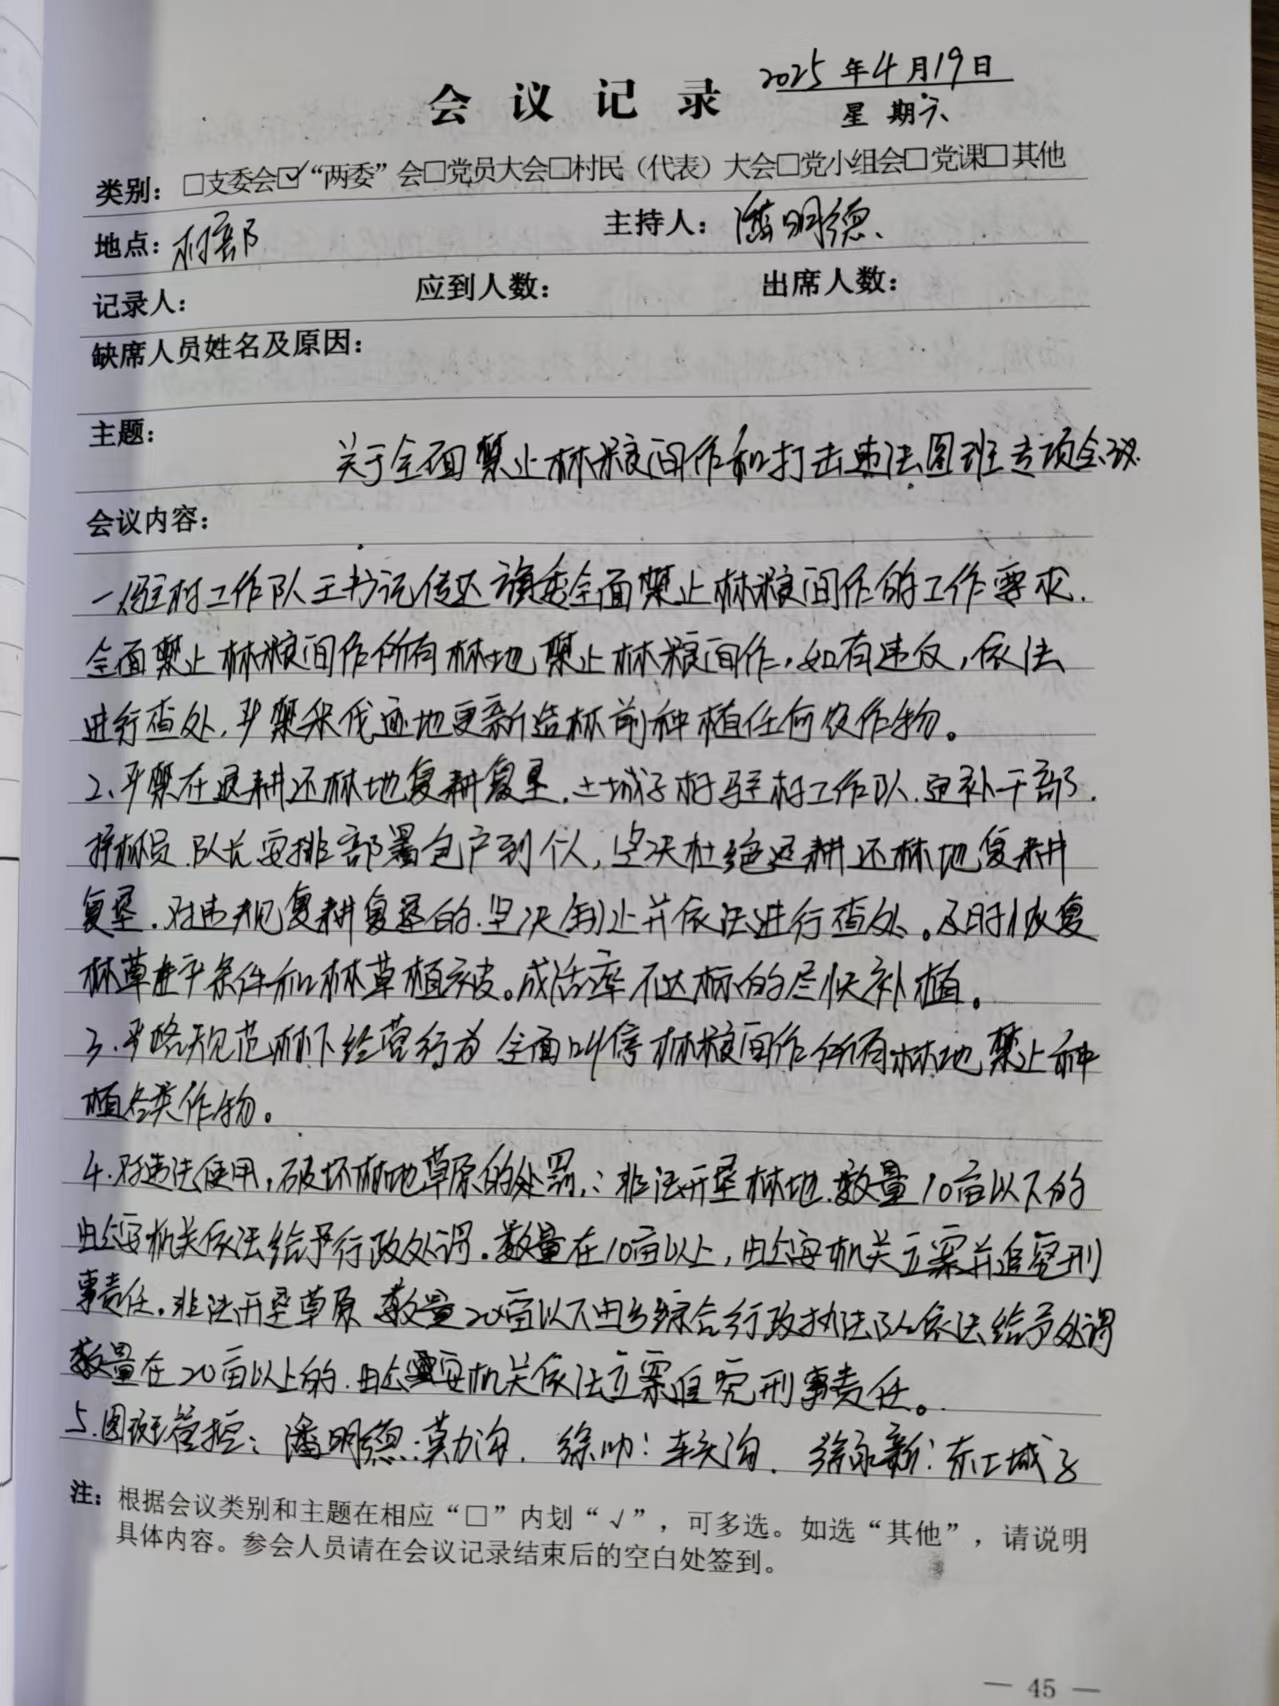 会议记录
2025年4月19日
星期六
类别：□支委会☑“两委”会□党员大会□村民（代表）大会□党小组会□党课□其他
地点：村部 主持人：潘明德
记录人： 应到人数： 出席人数：
缺席人员姓名及原因：
主题：
关于全面禁止林粮间作和打击违法图班专项会议
会议内容：
一、驻村工作队王书记传达旗委全面禁止林粮间作的工作要求.
全面禁止林粮间作所有林地禁止林粮间作，如有违反，依法
进行查处，严禁采伐迹地更新造林前种植任何农作物。
2、严禁在退耕还林地复耕复垦.土城子村驻村工作队.
护林员 队长 安排部署包户到个人，坚决杜绝退耕还林地复耕
复垦.对违规复耕复垦的.坚决制止并依法进行查处。及时恢复
林草生产条件和林草植被。成活率不达标的尽快补植。
3.严格规范林下经营行为 全面叫停林粮间作所有林地禁止种
植各类作物。
4.对违法使用，破坏林地草原的处罚：非法开垦林地.数量10亩以下的
由公安机关依法给予行政处罚.数量在10亩以上，由公安机关立案并追究刑
事责任.非法开垦草原 数量20亩以下由乡综合行政执法队依法给予处罚
数量在20亩以上的.由公安机关依法立案追究刑事责任。
5.图斑管控：潘明德：莫力沟. 徐帅：车头沟. 徐永新：东土城子
注：根据会议类别和主题在相应“□”内划“√”，可多选。如选“其他”，请说明
具体内容。参会人员请在会议记录结束后的空白处签到。
— 45 —